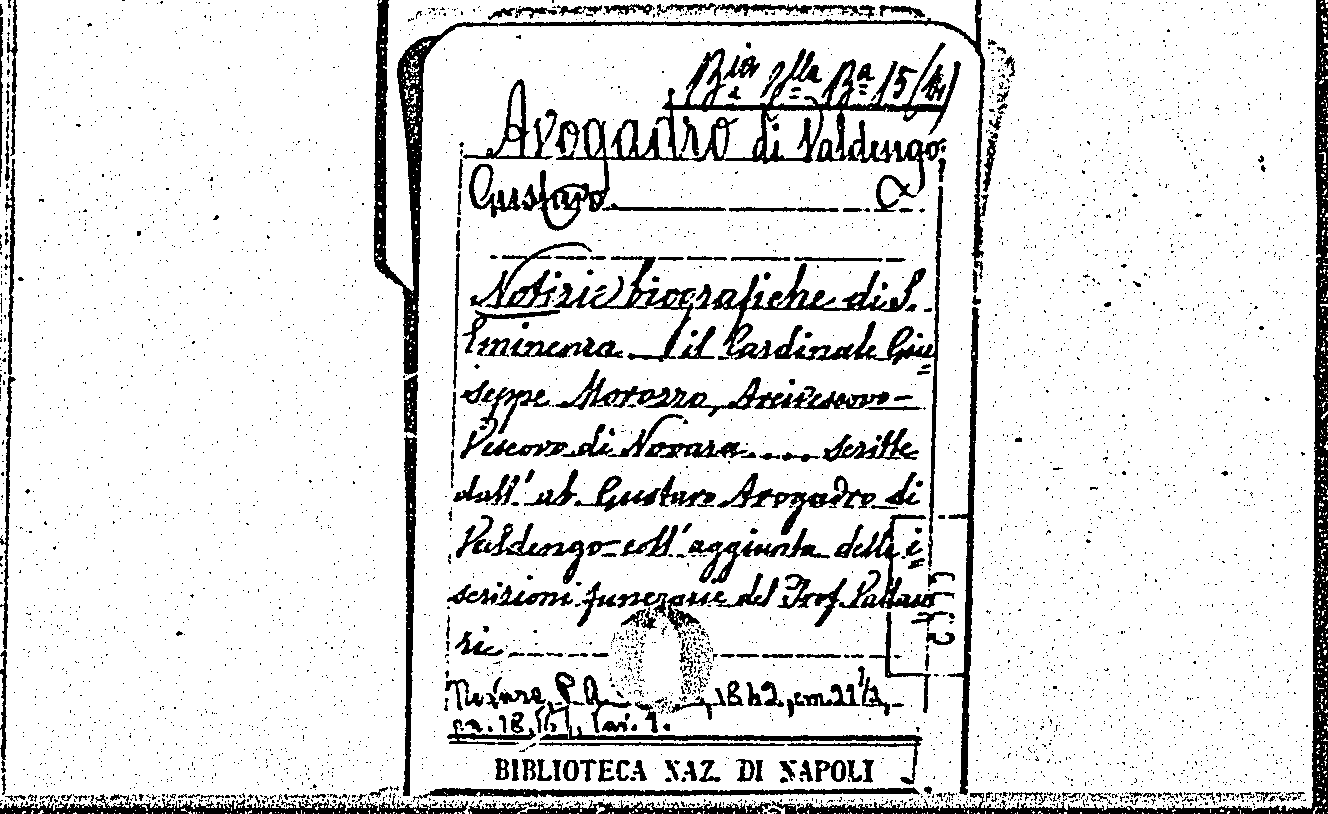 Bia 15/
Avogadro di Valdengo
Gustavo
Notizie biografiche di S.
Eminenza il Cardinale Giu
seppe Morozzo, Arcivescovo-
Vescovo di Novara.... scritte
dall' ab. Gustavo Avogadro di
Valdengo coll' aggiunta delle i
scrizioni funerarie del Prof.
ric
1842, cm. 21 1/2,
18, tav. 1.
BIBLIOTECA NAZ. DI NAPOLI